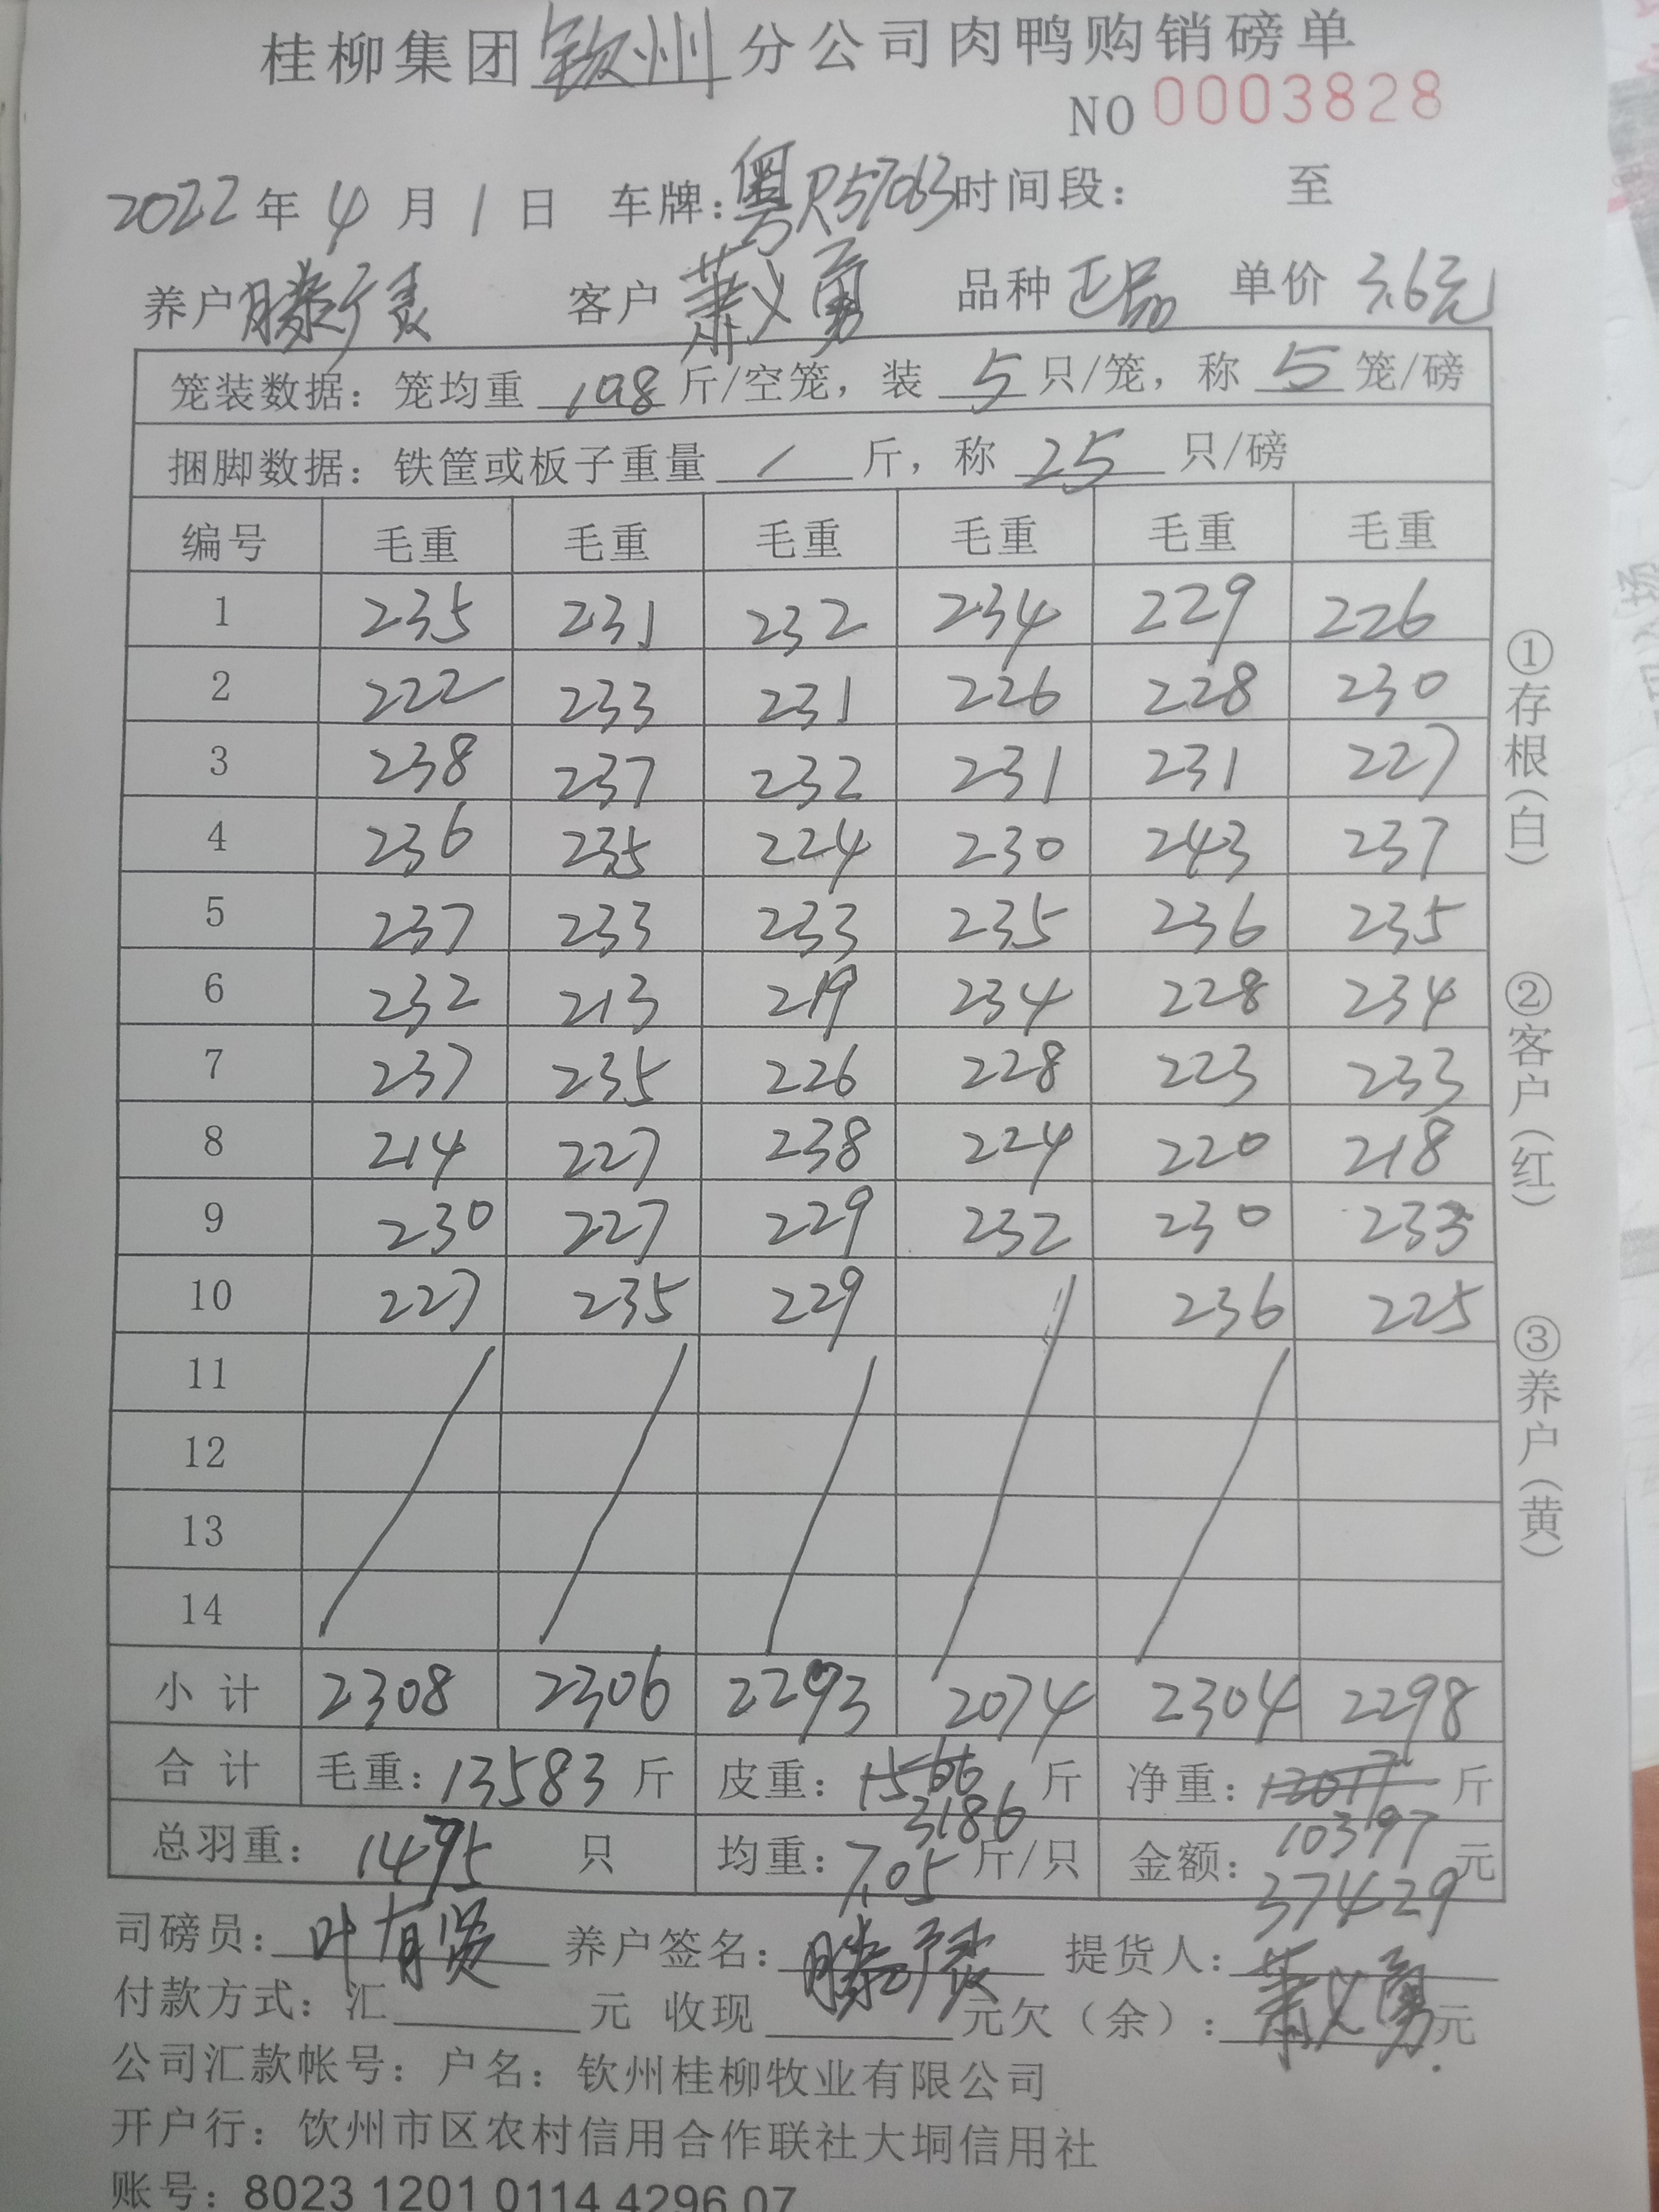 桂柳集团钦州分公司肉鸭购销磅单
NO 0003828
2022年4月1日 车牌:粤R57063时间段: 至
养户 客户 萧义勇 品种 正品 单价 3.6元
笼装数据:笼均重 10.8 斤/空笼,装 5 只/笼,称 5 笼/磅
捆脚数据:铁筐或板子重量 / 斤,称 25 只/磅
编号 毛重 毛重 毛重 毛重 毛重 毛重
1 235 231 232 234 229 226
2 222 233 231 226 228 230
3 238 237 232 231 231 227
4 236 235 224 230 243 237
5 237 233 233 235 236 235
6 232 213 219 234 228 234
7 237 235 226 228 223 233
8 214 227 238 224 220 218
9 230 227 229 232 230 233
10 227 235 229 236 225
11
12
13
14
小计 2308 2306 2293 2074 2304 2298
合计 毛重:13583斤 皮重:1566 斤 净重: 斤
3186 10397
总羽重:1495 只 均重:7.05斤/只 金额: 元
37429
司磅员:叶有贤 养户签名: 提货人:萧义勇
付款方式:汇 元 收现 元欠(余): 元
公司汇款帐号:户名:钦州桂柳牧业有限公司
开户行:钦州市区农村信用合作联社大垌信用社
账号:8023 1201 0114 4296 07
①存根(白)
②客户(红)
③养户(黄)